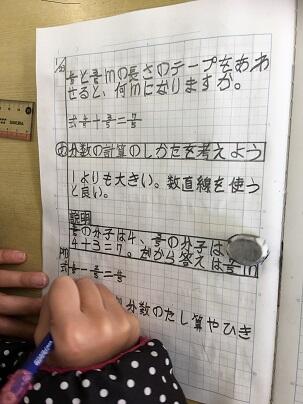 4/5と3/5mの長さのテープをあわ
せると、何mになりますか。
式 4/5+3/5=7/5
め 分数の計算のしかたを考えよう
1よりも大きい。数直線を使う
と良い。
説明
4/5の分子は4、3/5の分子は
4+3=7。だから答えは7/5m
式
分数のたし算やひき